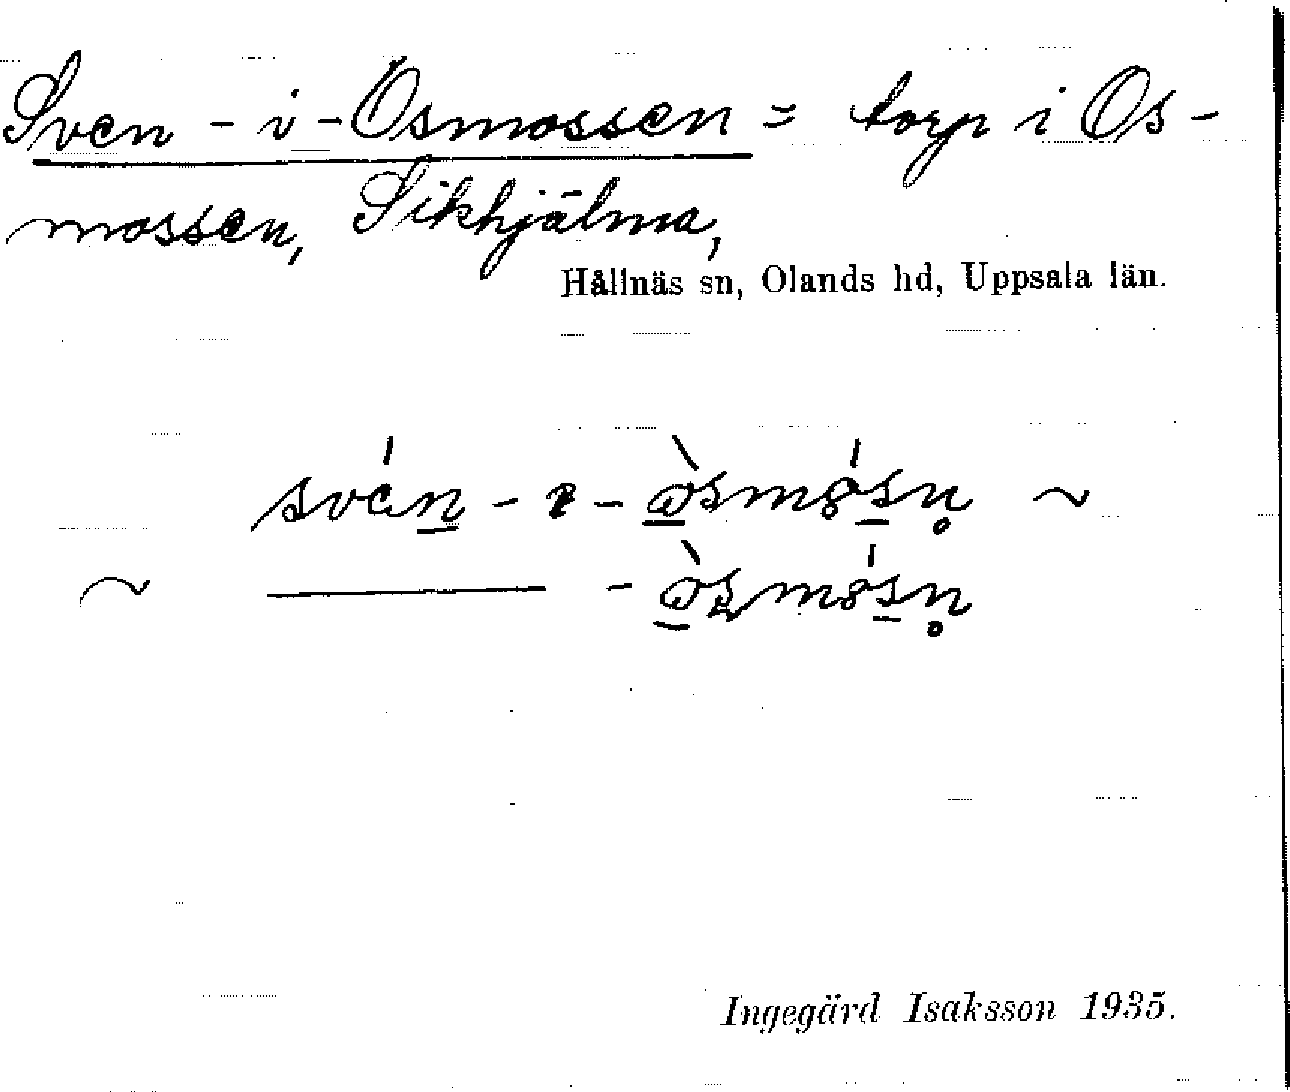 Sven-i-Osmossen = torp i Os-
mossen, Sikhjälma,
Hållnäs sn, Olands hd, Uppsala län.
Ingegärd Isaksson 1935.